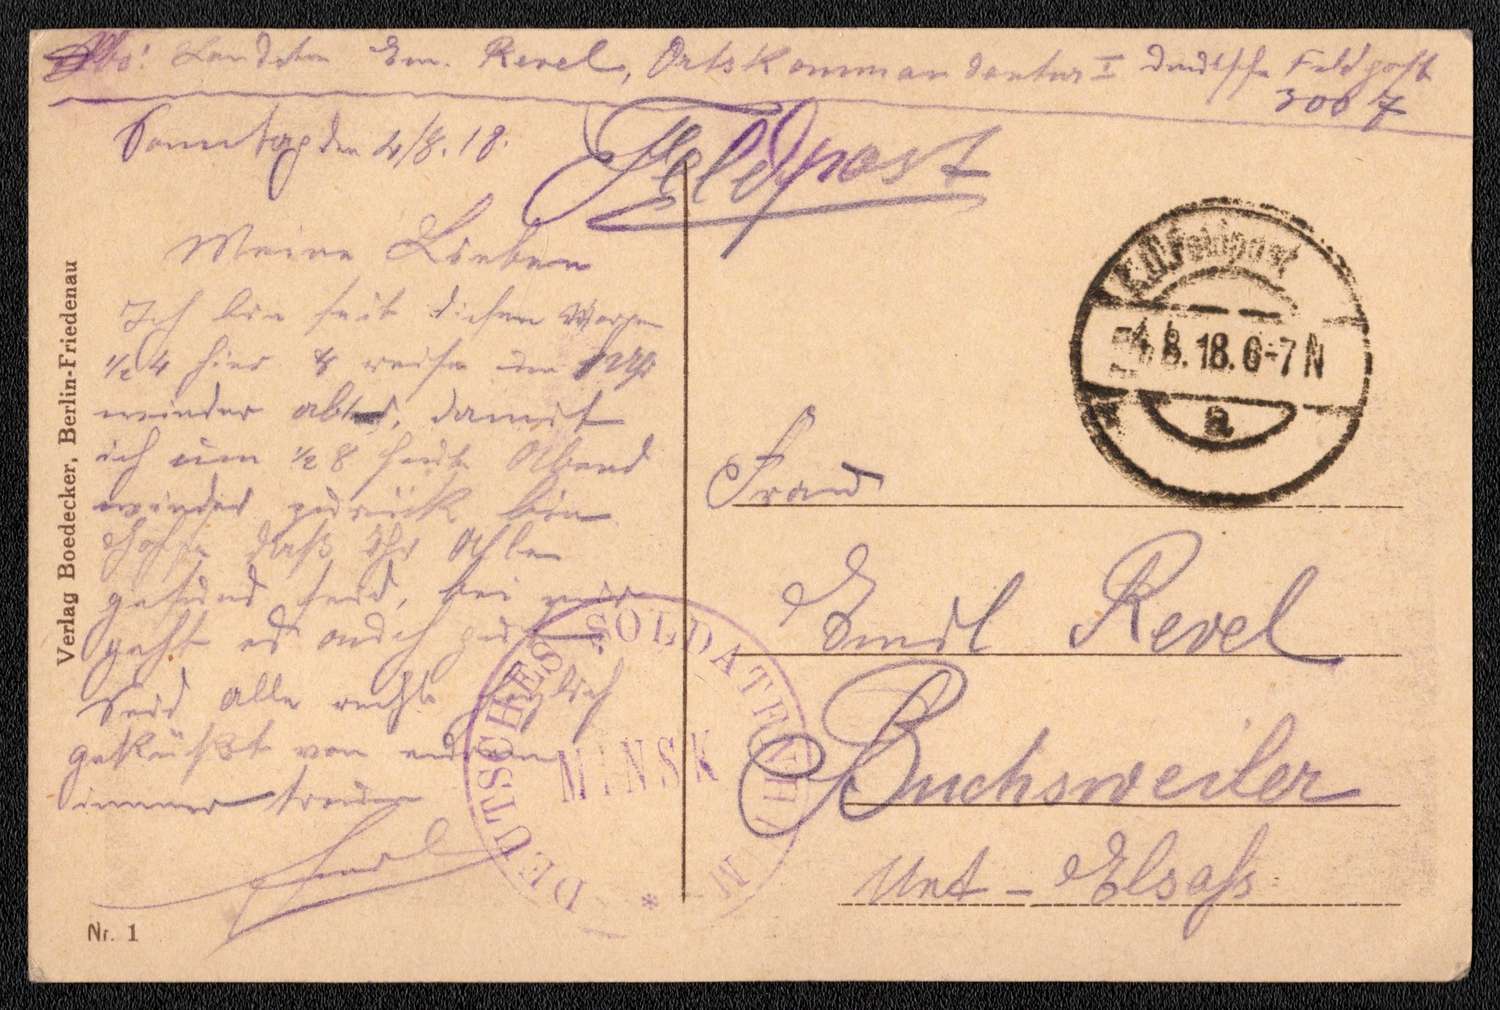 Abs: Landstm Em. Revel, Ortskommandantur I Deutsche Feldpost
3067
Sonntag den 4/8.18.
Feldpost
Meine Lieben
Ich bin seit diesem Morgen
1/2 4 hier & reise um
wieder ab, damit
ich um 1/2 8 heute Abend
wieder zurück bin
Hoffe daß Ihr Alle
gesund seid, bei mir
geht es auch gut
Seid Alle recht herzlich
geküßt von eurem
immer treuen
Emil
K.D. Feldpost
4.8.18.6-7N
a
Frau
Emil Revel
Buchsweiler
Unt-Elsaß
DEUTSCHES SOLDATENHEIM
MINSK
*
Verlag Boedecker, Berlin-Friedenau
Nr. 1